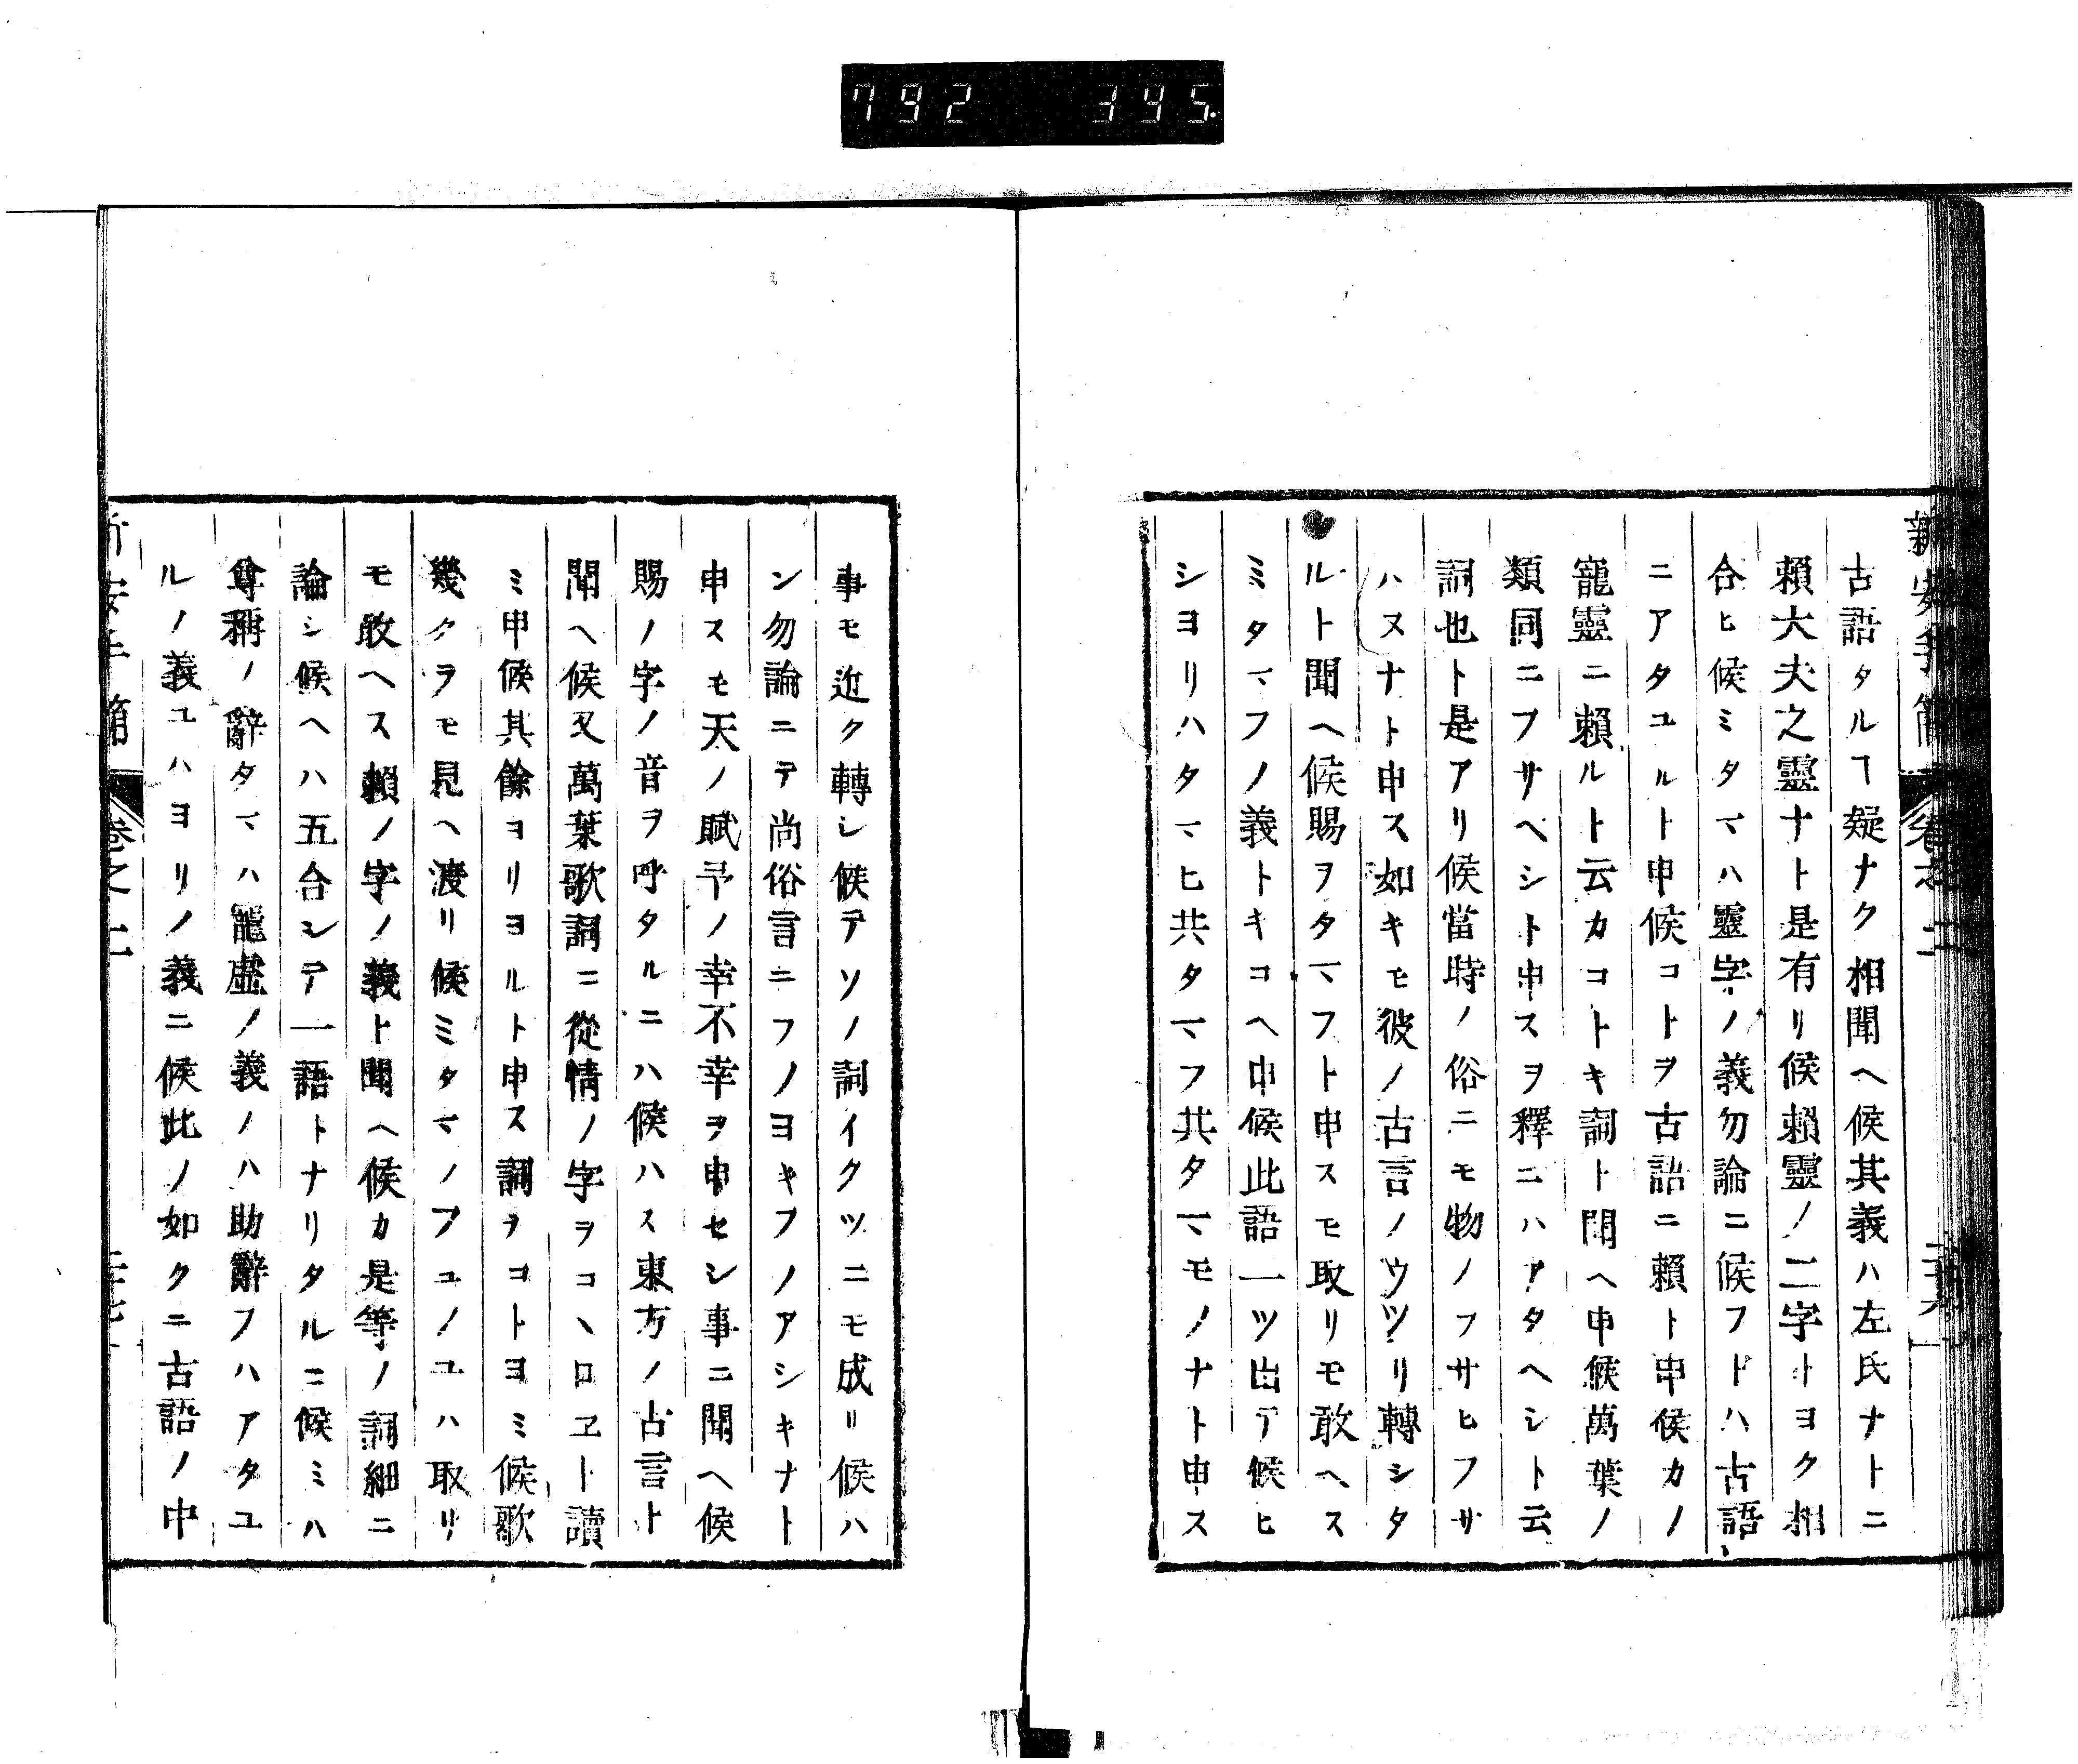 792 345.
古語タルヿ疑ナク相聞ヘ候其義ハ左氏ナトニ
賴大夫之靈ナト是有リ候賴靈ノ二字ナトヨク相
合ヒ候ミタマハ靈字ノ義勿論ニ候フドハ古語
ニアタユルト申候コトヲ古語ニ賴ト申候カノ
寵靈ニ賴ルト云カコトキ詞ト聞ヘ申候萬葉ノ
類同ニフサヘシト申スヲ釋ニハアタヘシト云
詞也ト是アリ候當時ノ俗ニモ物ノフサヒフサ
ハヌナト申ス如キモ彼ノ古言ノウツリ轉シタ
ルト聞ヘ候賜ヲタマフト申スモ取リモ敢ヘス
ミタマフノ義トキコヘ申候此語一ツ出テ候ヒ
シヨリハタマヒ共タマフ共タマモノナト申ス
事モ近ク轉シ候テソノ詞イクツニモ成リ候ハ
ン勿論ニテ尚俗言ニフノヨキフノアシキナト
申スモ天ノ賦予ノ幸不幸ヲ申セシ事ニ聞ヘ候
賜ノ字ノ音ヲ呼タルニハ候ハス東方ノ古言ト
聞ヘ候又萬葉歌詞ニ從情ノ字ヲコヽロヱト讀
ミ申候其餘ヨリヨルト申ス詞ヲコトヨミ候歌
幾クラモ見ヘ渡リ候ミタマノフユノユハ取リ
モ敢ヘス賴ノ字ノ義ト聞ヘ候カ是等ノ詞細ニ
論シ候ヘハ五合シテ一語トナリタルニ候ミハ
尊稱ノ辭タマハ寵虛ノ義ノハ助辭フハアタユ
ルノ義ユハヨリノ義ニ候此ノ如クニ古語ノ中
新安手簡 卷之二